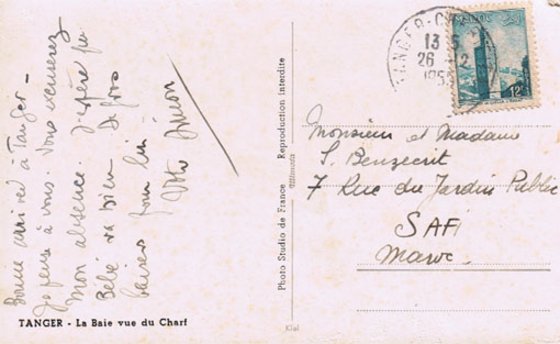 Bonne arrivée à Tanger -
Je pense à vous. Vous
mon absence. J'espère que
Bébé va bien. De gros
baisers pour lui -
Votre Simon
TANGER - La Baie vue du Charf
Photo Studio de France - Reproduction interdite
Kiel
TANGER-
13
26 - 2
195
MAROC
12F
Monsieur et Madame
S. Benzecrit
7 Rue du Jardin Public
SAFI
Maroc